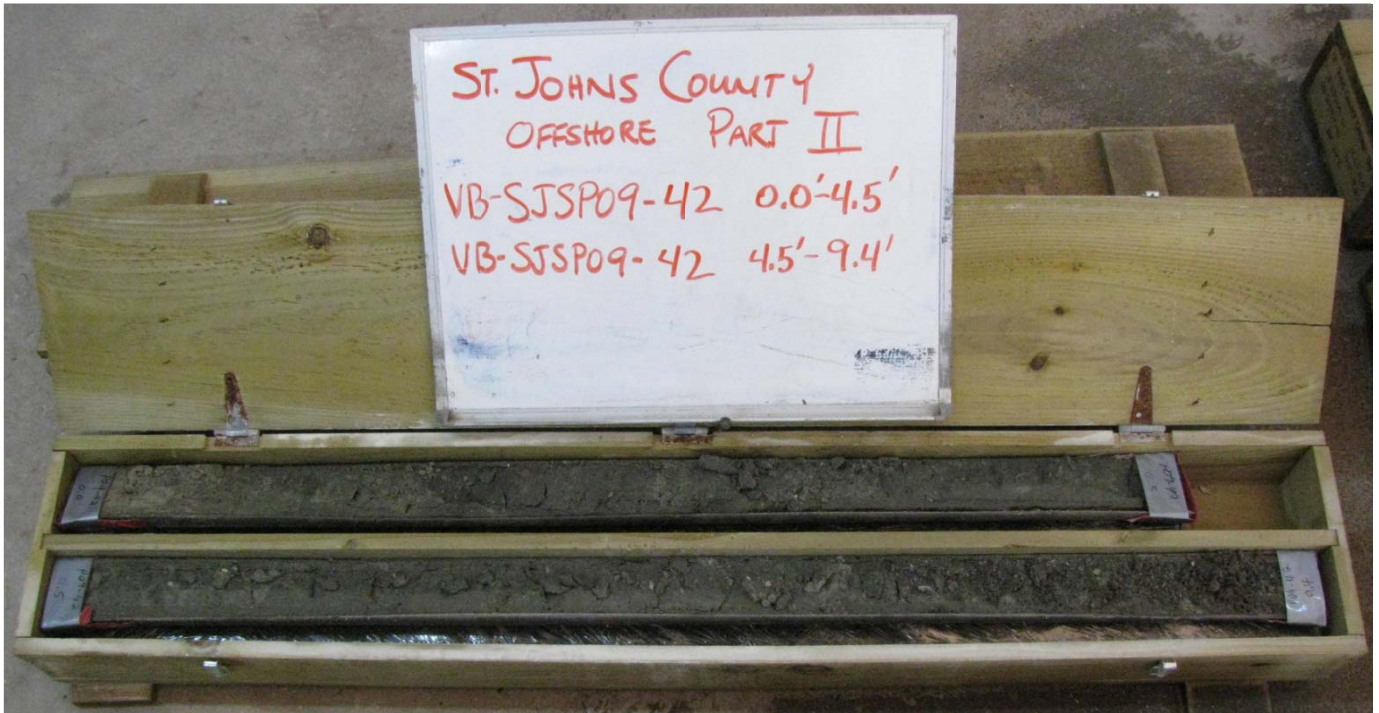 ST. JOHNS COUNTY
OFFSHORE PART II
VB-SJSP09-42 0.0'-4.5'
VB-SJSP09-42 4.5'-9.4'